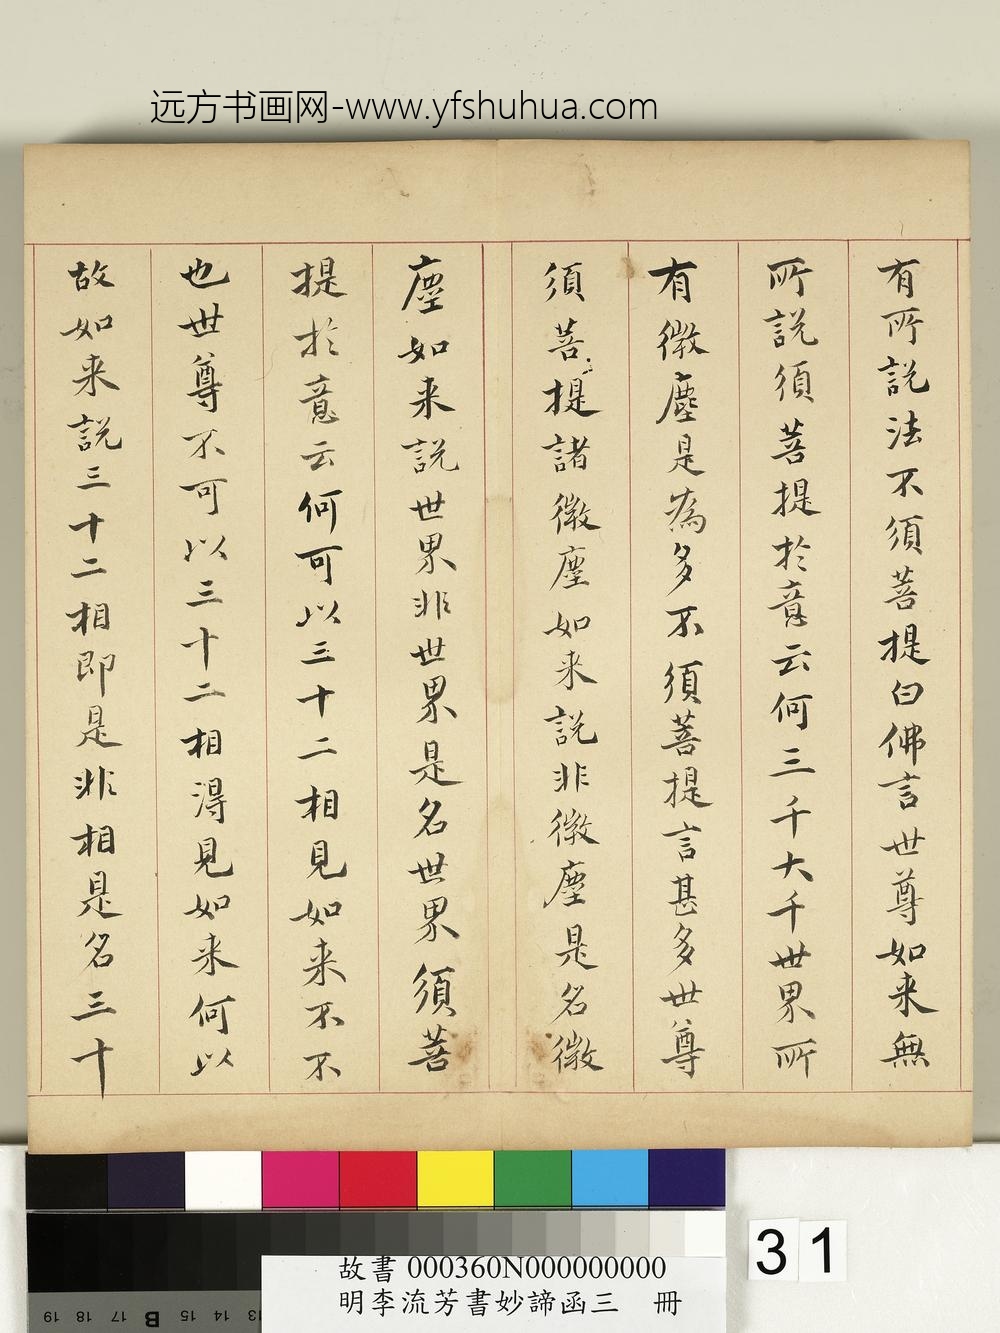 远方书画网-www.yfshuhua.com
有所說法不須菩提白佛言世尊如来無
所說須菩提於意云何三千大千世界所
有微塵是為多不須菩提言甚多世尊
須菩提諸微塵如来說非微塵是名微
塵如来說世界非世界是名世界須菩
提於意云何可以三十二相見如来不不
也世尊不可以三十二相得見如来何以
故如来說三十二相即是非相是名三十
31
故書 000360N000000000
明李流芳書妙諦函三 冊
19 18 17 B 15 14 13